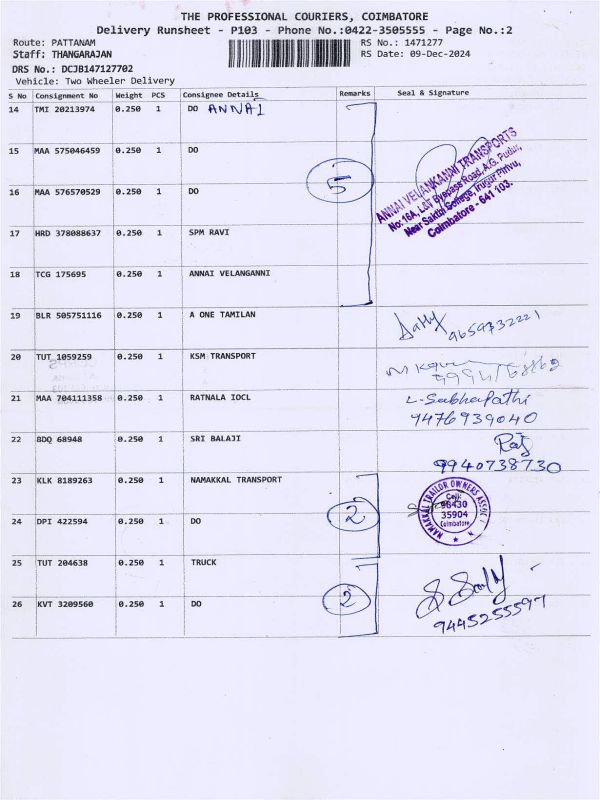 THE PROFESSIONAL COURIERS, COIMBATORE
Delivery Runsheet - P103 - Phone No.:0422-3505555 - Page No.:2
Route: PATTANAM
RS No.: 1471277
Staff: THANGARAJAN
RS Date: 09-Dec-2024
DRS No.: DCJB147127702
Vehicle: Two Wheeler Delivery
S No Consignment No Weight PCS Consignee Details Remarks Seal & Signature
14 TMI 20213974 0.250 1 DO ANNAI
15 MAA 575046459 0.250 1 DO
16 MAA 576570529 0.250 1 DO
5
ANNAI VELANKANNI TRANSPORTS
No:16A, L&T Byepass Road, A.G. Pudur,
Near Sakthi College, Irugur Pirivu,
Coimbatore - 641 103.
17 HRD 378088637 0.250 1 SPM RAVI
18 TCG 175695 0.250 1 ANNAI VELANGANNI
19 BLR 505751116 0.250 1 A ONE TAMILAN
20 TUT 1059259 0.250 1 KSM TRANSPORT
21 MAA 704111358 0.250 1 RATNALA IOCL L-Sabhapathi
9476939040
22 BDQ 68948 0.250 1 SRI BALAJI Raj
9940738730
23 KLK 8189263 0.250 1 NAMAKKAL TRANSPORT
2
NAMAKKAL TRAILOR OWNERS
Cell:
96430
35904
Coimbatore
24 DPI 422594 0.250 1 DO
25 TUT 204638 0.250 1 TRUCK
26 KVT 3209560 0.250 1 DO 2
9445255597